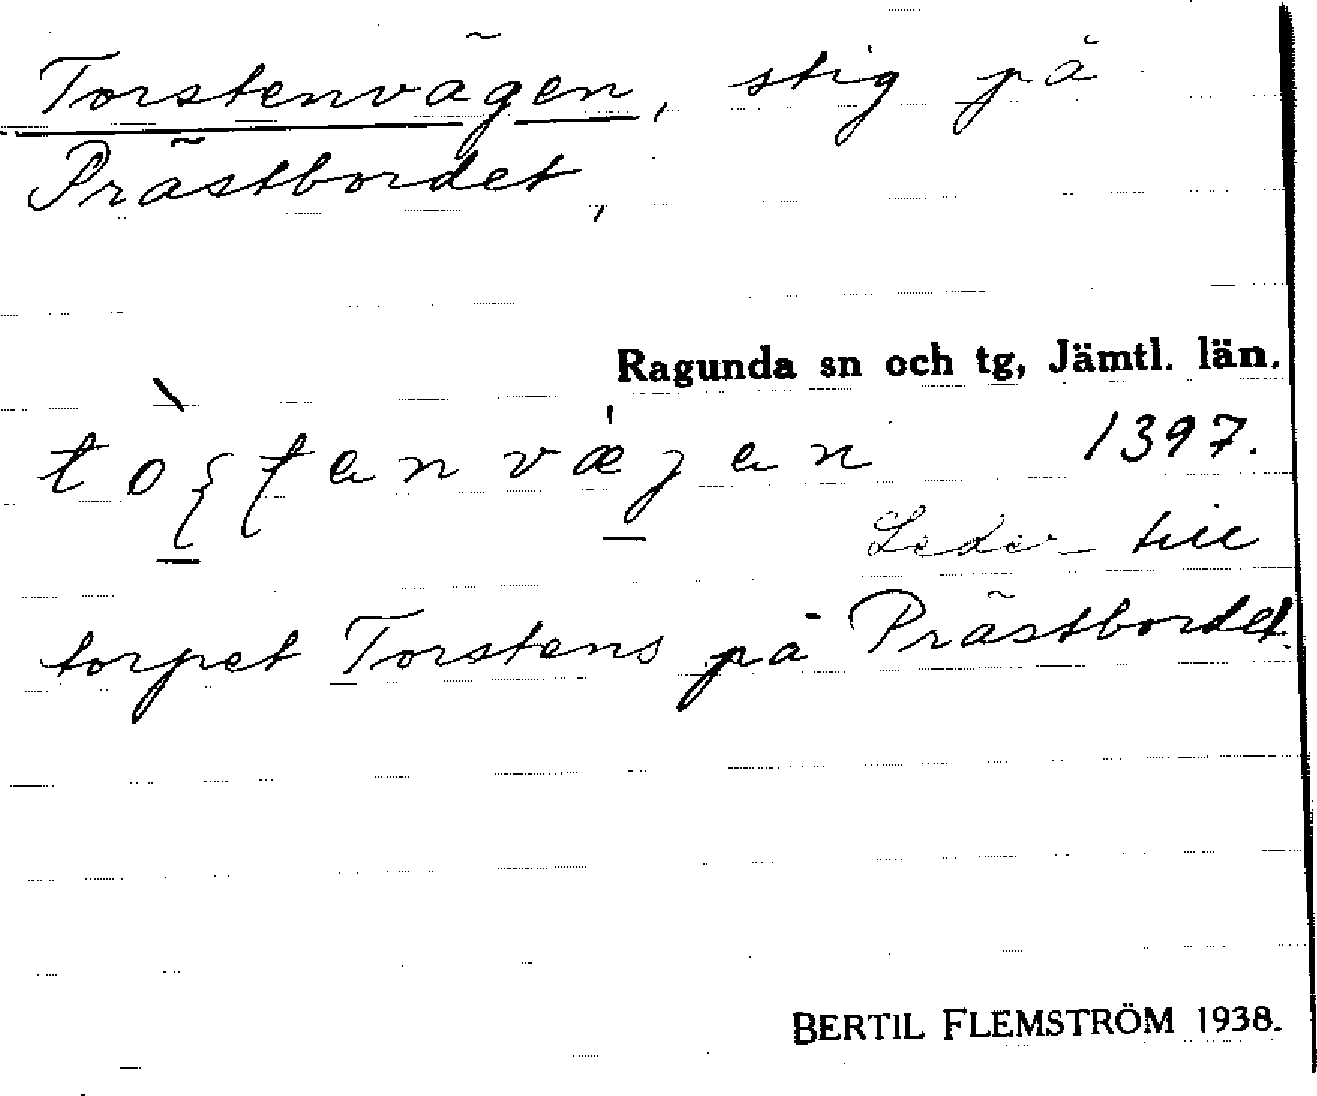 Torstenvägen, stig på
Prästbordet,
Ragunda sn och tg, Jämtl. län.
1397.
Leder till
torpet Torstens på Prästbordet.
BERTIL FLEMSTRÖM 1938.